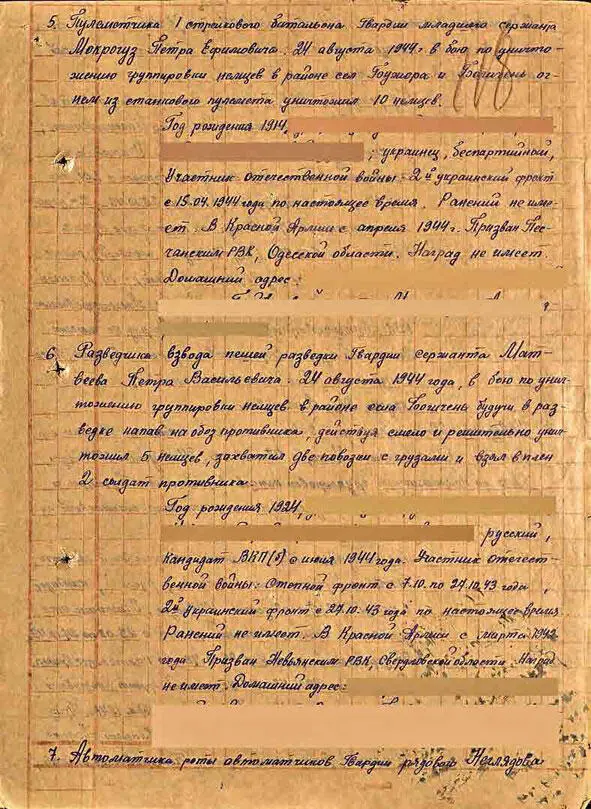 5. Пулеметчика 1 стрелкового батальона Гвардии младшего сержанта
Мокрогуз Петра Ефимовича. 24 августа 1944 г. в бою по уничто-
жению группировки немцев в районе сел Бужора и Богичень ог-
нем из станкового пулемета уничтожил 10 немцев.
Год рождения 1914,
, украинец, беспартийный,
Участник отечественной войны: 2й украинский фронт
с 15.04.1944 года по настоящее время. Ранений не име-
ет. В Красной Армии с апреля 1944 г. Призван Пес-
чанским РВК, Одесской области. Наград не имеет.
Домашний адрес:
6. Разведчика взвода пешей разведки Гвардии сержанта Мат-
веева Петра Васильевича. 24 августа 1944 года, в бою по унич-
тожению группировки немцев в районе села Богичень будучи в раз-
ведке напав на обоз противника, действуя смело и решительно унич-
тожил 5 немцев, захватил две повозки с грузами и взял в плен
2 солдат противника.
Год рождения 1924,
русский,
кандидат ВКП(б) с июля 1944 года. Участник отечест-
венной войны: Степной фронт с 7.10. по 27.10.43 года,
2й украинский фронт с 27.10.43 года по настоящее время
Ранений не имеет. В Красной Армии с марта
года. Призван Невьянским РВК, Свердловской области. Наград
не имеет. Домашний адрес:
7. Автоматчика, роты автоматчиков Гвардии рядового Неглядова